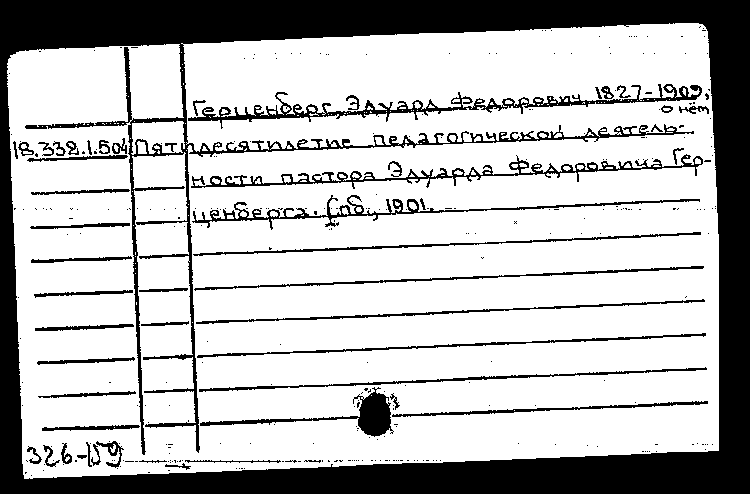 Герценберг, Эдуард Федорович, 1827-1909,
о нём
18.338.1.504 Пятидесятилетие педагогической деятель-
ности пастора Эдуарда Федоровича Гер-
ценберга. Спб., 1901.
326.-159